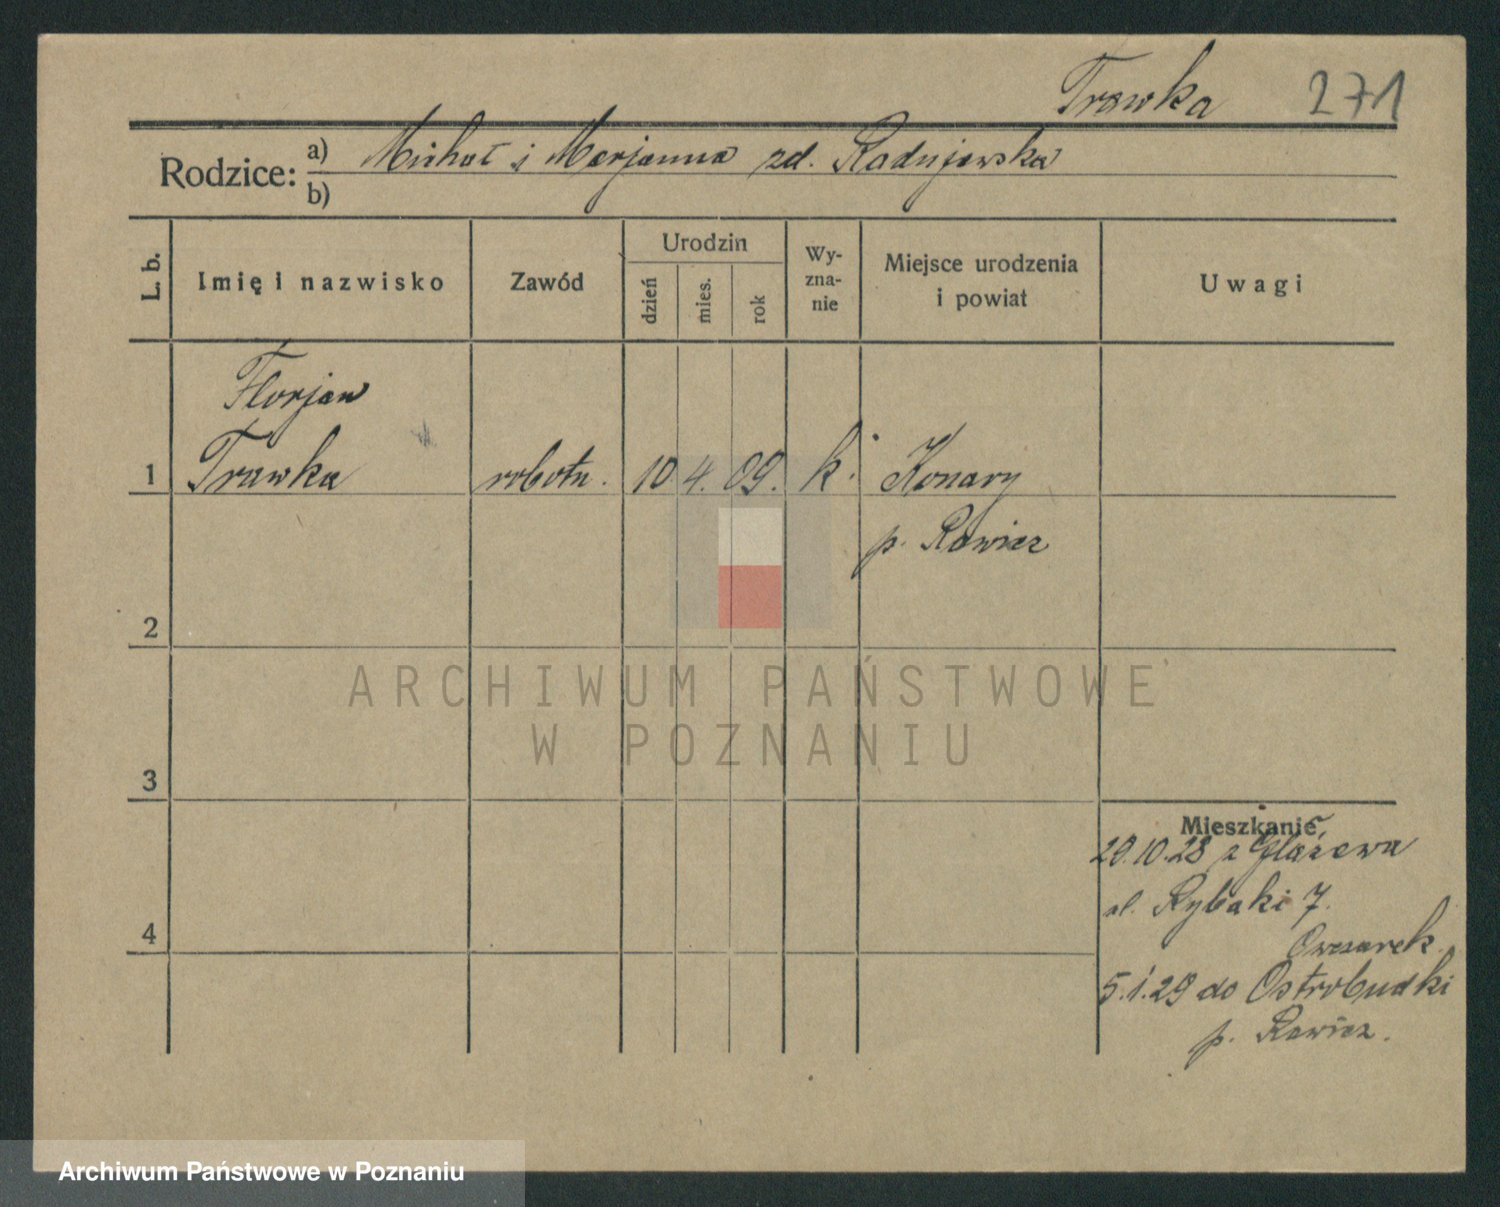 Trawka 271
Rodzice: a) Michał i Marjanna zd. Radujewska
b)
L. b.
Imię i nazwisko
Zawód
Urodzin
dzień
mies.
rok
Wy-
zna-
nie
Miejsce urodzenia
i powiat
Uwagi
Florjan
1 Trawka robotn. 10 4. 09. k. Konary
p. Rawicz
2
ARCHIWUM PAŃSTWOWE
W POZNANIU
3
Mieszkanie
29.10.28 z
ul. Rybaki 7.
4
Owczarek
5.1.29 do Ostrobudki
p. Rawicz.
Archiwum Państwowe w Poznaniu